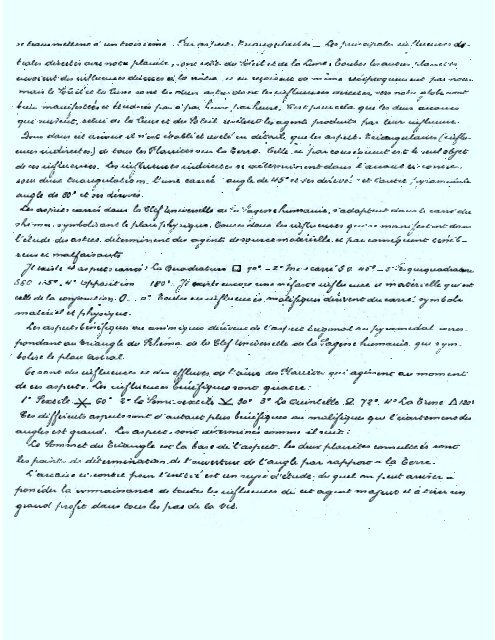 se transmettent à un troisième. Par aspects Triangulaires — Les principales influences dé-
triales directes avec notre planète, sont celles du Soleil et de la Lune. Toutes les autres planètes
envoient des influences diverses à la nôtre, et en reçoivent de même réciproquement par nous
mais le Soleil et la Lune sont les deux astres dont les influences directes vers notre globe sont
bien manifestées et étudiées pas à pas, heure par heure. C'est pour cela que les deux arcanes
qui suivent, celui de la Lune et du Soleil révèlent les agents produits par leur influence.
Donc dans cet arcane il n'est établi et révélé en détails, que les aspects Triangulaires (influen-
ces indirectes) de tous les Planètes vers la Terre. Telle est par conséquent est le seul objet
de ces influences. Les influences indirectes se déterminent dans l'arcane ci-contre,
sous deux triangulations, l'une carrée angle de 45° et ses dérivés - et l'autre pyramidale
angle de 60° et ses dérivés.
Les aspects carrés dans la Clef Universelle de la Sagesse humaine, s'adaptent dans le carré du
schéma, symbolisant le plan physique. Toutes les influences qui se manifestent dans
l'étude des astres, déterminent des agents de source matérielle, et par conséquent ténéb-
reux et malfaisants
Il existe 4 aspects carrés: la Quadrature □ 90° - 2° mi-carré 45° - 3° Sesquiquadrature
135° - 4° Opposition 180°. Il existe encore une néfaste influence et matérielle qui est
celle de la conjonction. Toutes ces influences maléfiques dérivent du carré, symbole
matériel et physique.
Les aspects bénéfiques ou animiques dérivent de l'aspect trigonal ou pyramidal corres-
pondant au triangle du Schéma de la Clef Universelle de la Sagesse humaine, qui sym-
bolise le plan astral.
Ce sont des influences et des effluves de l'âme des Planètes qui agissent au moment
de ces aspects. Les influences bénéfiques sont quatre:
1° Sextile 60° 2° la Semi-sextile 30° 3° La Quintelle 72° 4° La Trine △ 120°
Ces différents aspects sont d'autant plus bénéfiques ou maléfiques que l'écartement des
angles est grand. Les aspects sont déterminés comme il suit:
Le Sommet du triangle est la base de l'aspect, les deux planètes consultées sont
les points de détermination, de l'ouverture de l'angle par rapport à la Terre.
L'arcane ci-contre pour l'initié est un sujet d'étude, duquel on peut arriver à
posséder la connaissance de toutes les influences de cet agent majeur et à tirer un
grand profit dans tous les pas de la vie.